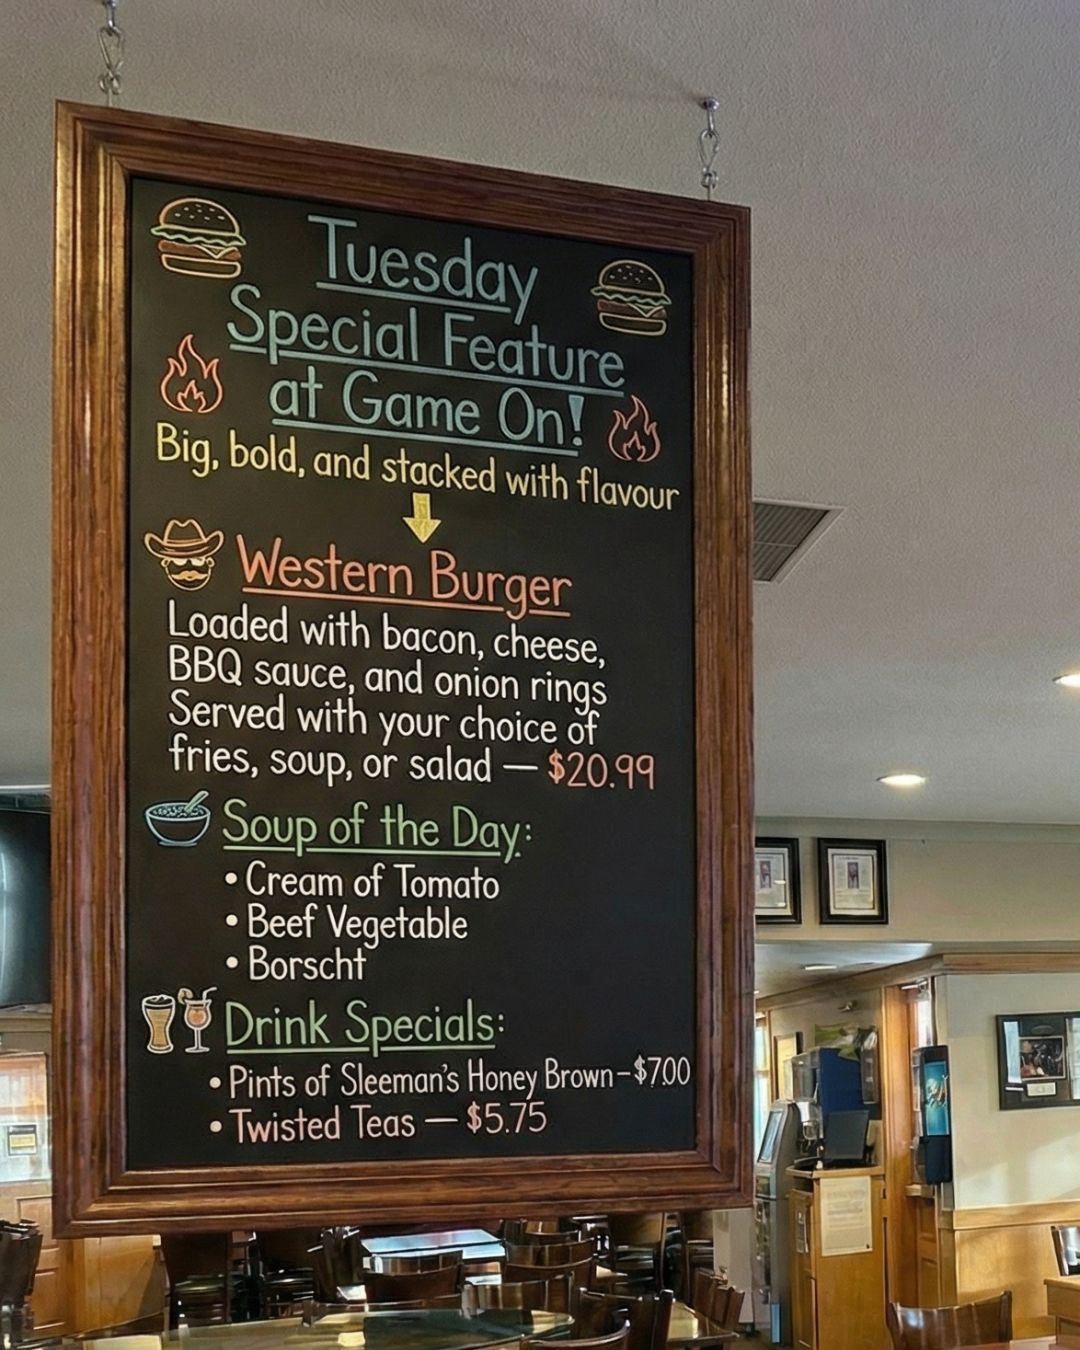 Tuesday
Special Feature
at Game On!
Big, bold, and stacked with flavour
Western Burger
Loaded with bacon, cheese,
BBQ sauce, and onion rings
Served with your choice of
fries, soup, or salad — $20.99
Soup of the Day:
• Cream of Tomato
• Beef Vegetable
• Borscht
Drink Specials:
• Pints of Sleeman's Honey Brown - $7.00
• Twisted Teas — $5.75